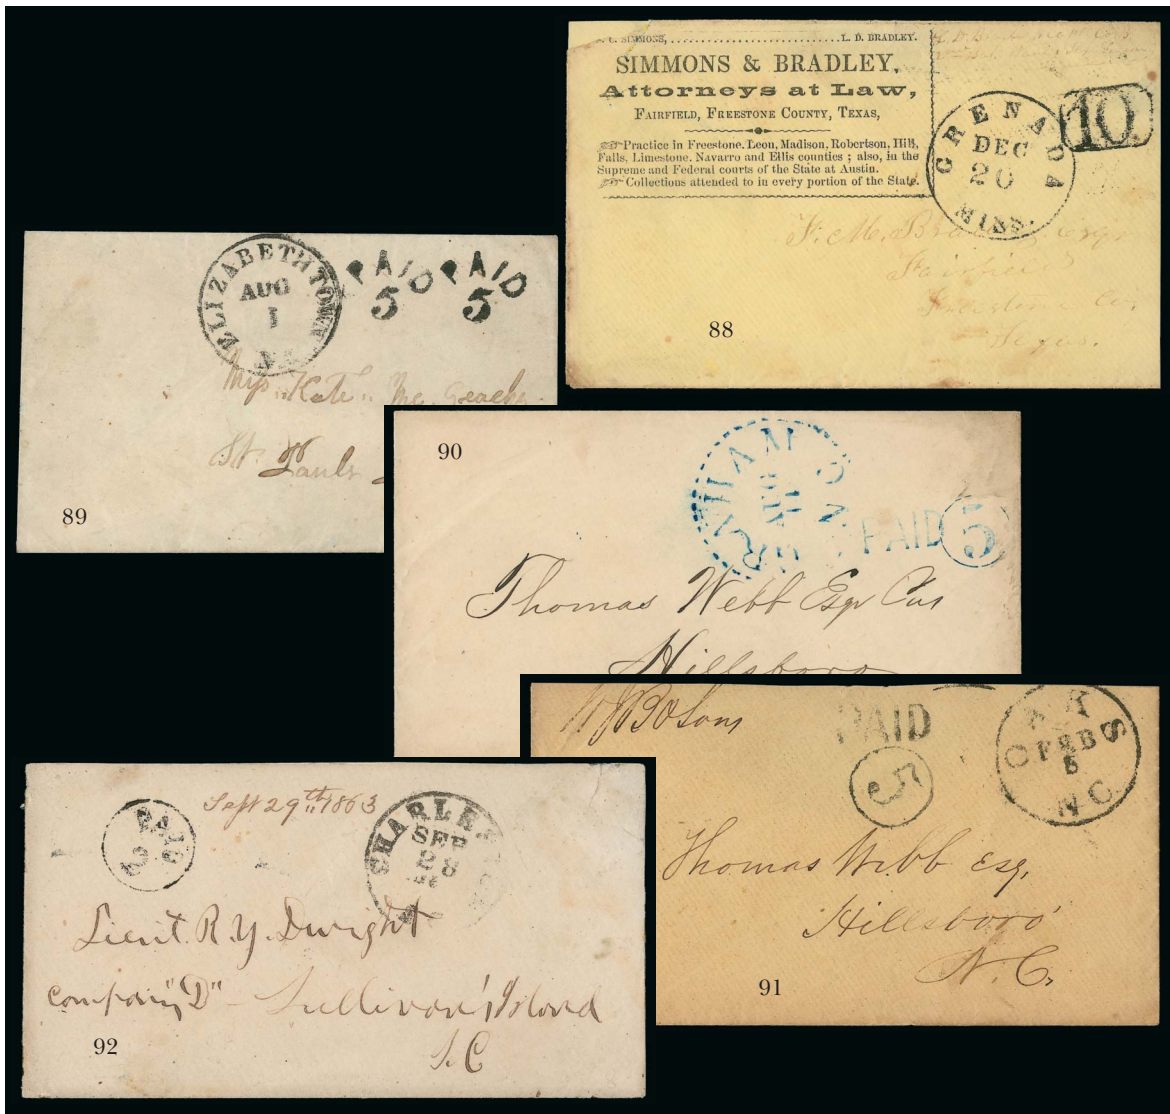 C. SIMMONS, L. D. BRADLEY.
SIMMONS & BRADLEY,
Attorneys at Law,
FAIRFIELD, FREESTONE COUNTY, TEXAS,
Practice in Freestone. Leon, Madison, Robertson, Hill,
Falls, Limestone. Navarro and Ellis counties ; also, in the
Supreme and Federal courts of the State at Austin.
Collections attended to in every portion of the State.
GRENADA
DEC
20
MISS.
10
Fairfield
Freestone Co.
Texas.
88
ELIZABETHTOWN
AUG
1
N.C.
PAID
5
PAID
5
Mrs. Kate Mc Geachy
St. Pauls
89
90
DURHAM
APR
11
N C
PAID 5
Thomas Webb Esqr
Hillsboro
PAID
5
OAKS
FEB
5
NC
Thomas Webb Esq.
Hillsboro'
N. C.
91
PAID
Sept 29th 1863
CHARLESTON
SEP
28
Lieut. R. Y. Dwight
company "D" Sullivan's Island
S. C
92